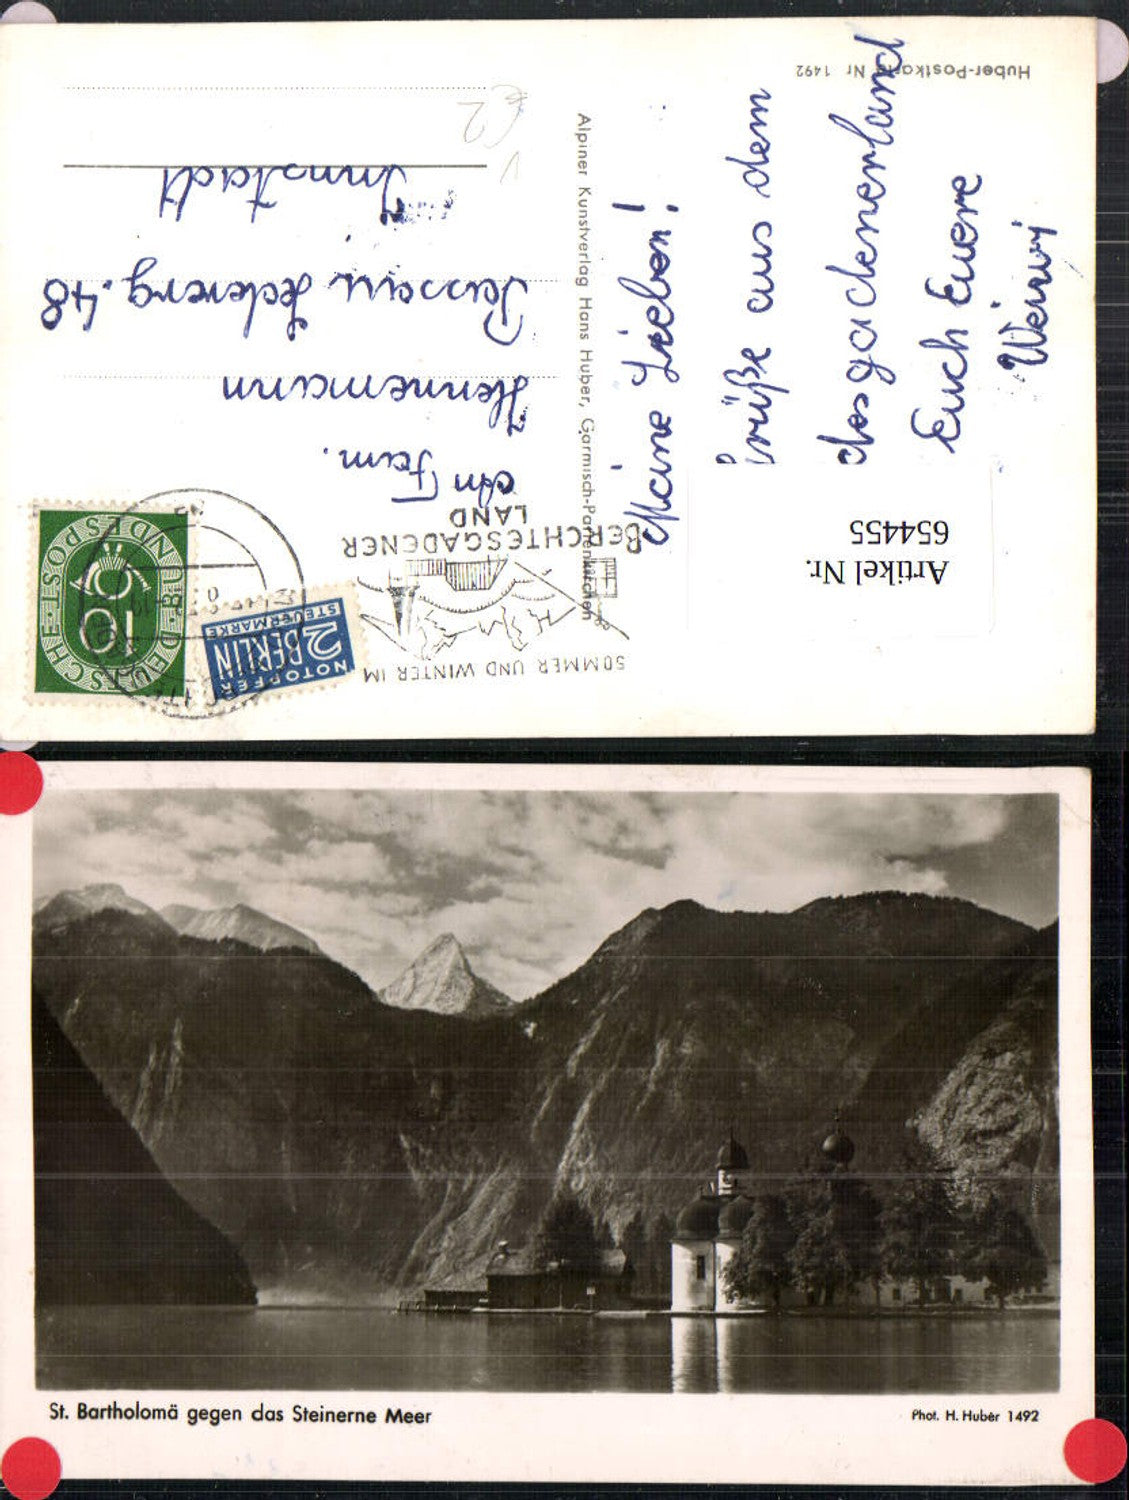 Huber-Postkarte Nr. 1492
Meine Lieben!
Grüße aus dem
Euch Euere
Alpiner Kunstverlag Hans Huber, Garmisch-Partenkirchen
Artikel Nr.
654455
SOMMER UND WINTER IM
BERCHTESGADENER
LAND
DEUTSCHE BUNDESPOST
10
NOTOPFER
2 BERLIN
STEUERMARKE
An Fam.
Hennemann
Passau Ledererg. 48
Innstadt
€2
St. Bartholomä gegen das Steinerne Meer
Phot. H. Huber 1492